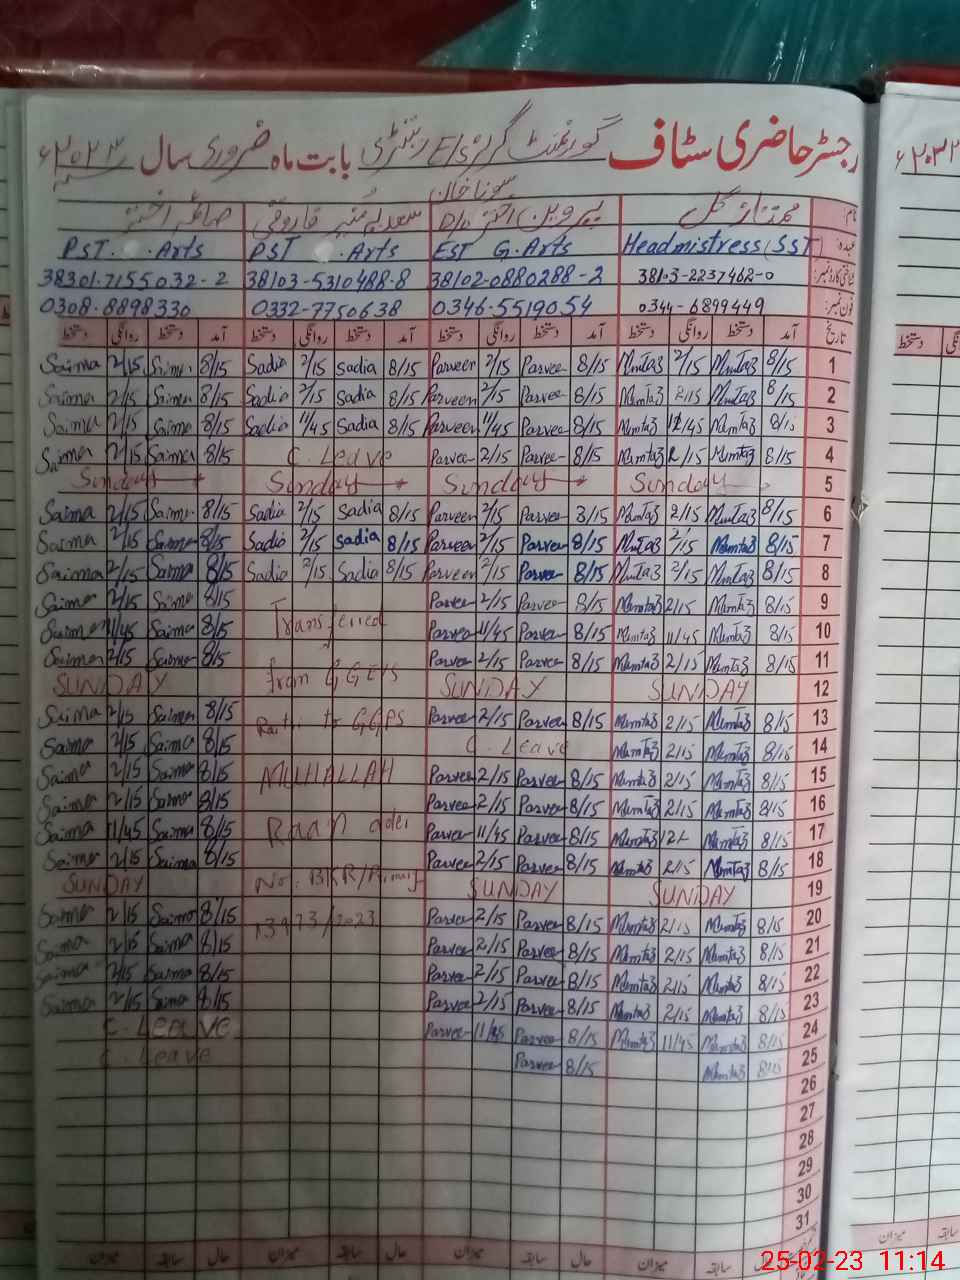 رجسٹر حاضری سٹاف گورنمنٹ گرلز E/S بابت ماہ فروری سال ۲۰۲۳ء
نام: ممتاز گل پروین اختر D/o سونا خان سعدیہ منیر فاروقی صائمہ اختر
عہدہ: Headmistress (SST) EST G. Arts PST . Arts PST . . Arts
شناختی کارڈ نمبر: 38103-2237462-0 38102-0880288-2 38103-5310488-8 38301-7155032-2
فون نمبر: 0344-6899449 0346-5519054 0332-7750638 0308-8898330
تاریخ آمد دستخط روانگی دستخط آمد دستخط روانگی دستخط آمد دستخط روانگی دستخط آمد دستخط روانگی دستخط
Saima 2/15 Saima 8/15 Sadia 2/15 Sadia 8/15 Parveen 2/15 Parveen 8/15 Mumtaz 2/15 Mumtaz 8/15 1
Saima 2/15 Saima 8/15 Sadia 2/15 Sadia 8/15 Parveen 2/15 Parveen 8/15 Mumtaz 2/15 Mumtaz 8/15 2
Saima 2/15 Saima 8/15 Sadia 11/45 Sadia 8/15 Parveen 11/45 Parveen 8/15 Mumtaz 11/45 Mumtaz 8/15 3
Saima 2/15 Saima 8/15 C. Leave Parveen 2/15 Parveen 8/15 Mumtaz 2/15 Mumtaz 8/15 4
Sunday Sunday Sunday Sunday 5
Saima 2/15 Saima 8/15 Sadia 2/15 Sadia 8/15 Parveen 2/15 Parveen 8/15 Mumtaz 2/15 Mumtaz 8/15 6
Saima 2/15 Saima 8/15 Sadia 2/15 Sadia 8/15 Parveen 2/15 Parveen 8/15 Mumtaz 2/15 Mumtaz 8/15 7
Saima 2/15 Saima 8/15 Sadia 2/15 Sadia 8/15 Parveen 2/15 Parveen 8/15 Mumtaz 2/15 Mumtaz 8/15 8
Saima 2/15 Saima 8/15 Parveen 2/15 Parveen 8/15 Mumtaz 2/15 Mumtaz 8/15 9
Saima 11/45 Saima 8/15 Transferred Parveen 11/45 Parveen 8/15 Mumtaz 11/45 Mumtaz 8/15 10
Saima 2/15 Saima 8/15 Parveen 2/15 Parveen 8/15 Mumtaz 2/15 Mumtaz 8/15 11
SUNDAY from GGE/S SUNDAY SUNDAY 12
Saima 2/15 Saima 8/15 to GGPS Parveen 2/15 Parveen 8/15 Mumtaz 2/15 Mumtaz 8/15 13
Saima 2/15 Saima 8/15 C. Leave Mumtaz 2/15 Mumtaz 8/15 14
Saima 2/15 Saima 8/15 MUHALLAH Parveen 2/15 Parveen 8/15 Mumtaz 2/15 Mumtaz 8/15 15
Saima 2/15 Saima 8/15 Parveen 2/15 Parveen 8/15 Mumtaz 2/15 Mumtaz 8/15 16
Saima 11/45 Saima 8/15 Parveen 11/45 Parveen 8/15 Mumtaz Mumtaz 8/15 17
Saima 2/15 Saima 8/15 Parveen 2/15 Parveen 8/15 Mumtaz 2/15 Mumtaz 8/15 18
SUNDAY No: SUNDAY SUNDAY 19
Saima 2/15 Saima 8/15 Parveen 2/15 Parveen 8/15 Mumtaz 2/15 Mumtaz 8/15 20
Saima 2/15 Saima 8/15 Parveen 2/15 Parveen 8/15 Mumtaz 2/15 Mumtaz 8/15 21
Saima 2/15 Saima 8/15 Parveen 2/15 Parveen 8/15 Mumtaz 2/15 Mumtaz 8/15 22
Saima 2/15 Saima 8/15 Parveen 2/15 Parveen 8/15 Mumtaz 2/15 Mumtaz 8/15 23
C. Leave Parveen 11/45 Parveen 8/15 Mumtaz 11/45 Mumtaz 8/15 24
C. Leave Parveen 8/15 Mumtaz 8/15 25
26
27
28
29
30
31
حال سابقہ میزان حال سابقہ میزان حال سابقہ میزان سابقہ میزان
25-02-23 11:14